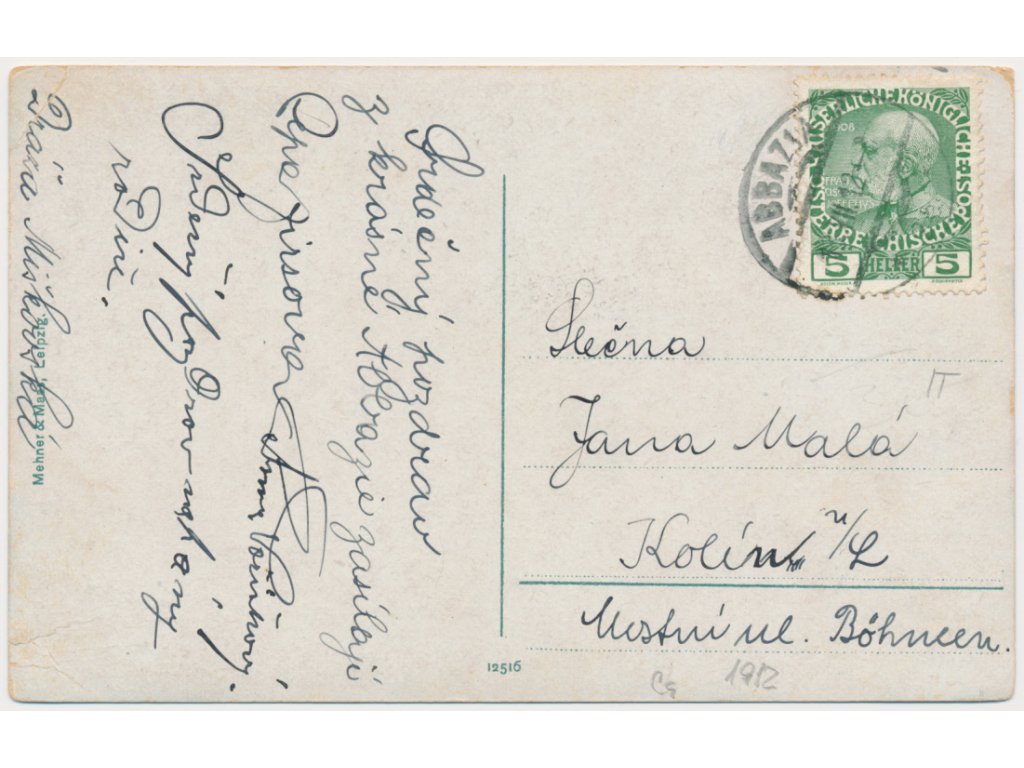 Srdečný pozdrav
z krásné Abbazie zasílají
Pepa
Anna
Srdečný pozdrav
rodině.
Mehner & Maas, Leipzig.
12516
ABBAZIA
KAISERLICHE KÖNIGLICHE
ÖSTERREICHISCHE POST
5 HELLER 5
Slečna
Jana Malá
Kolín n/L
Mestní ul. Böhmen.
1912